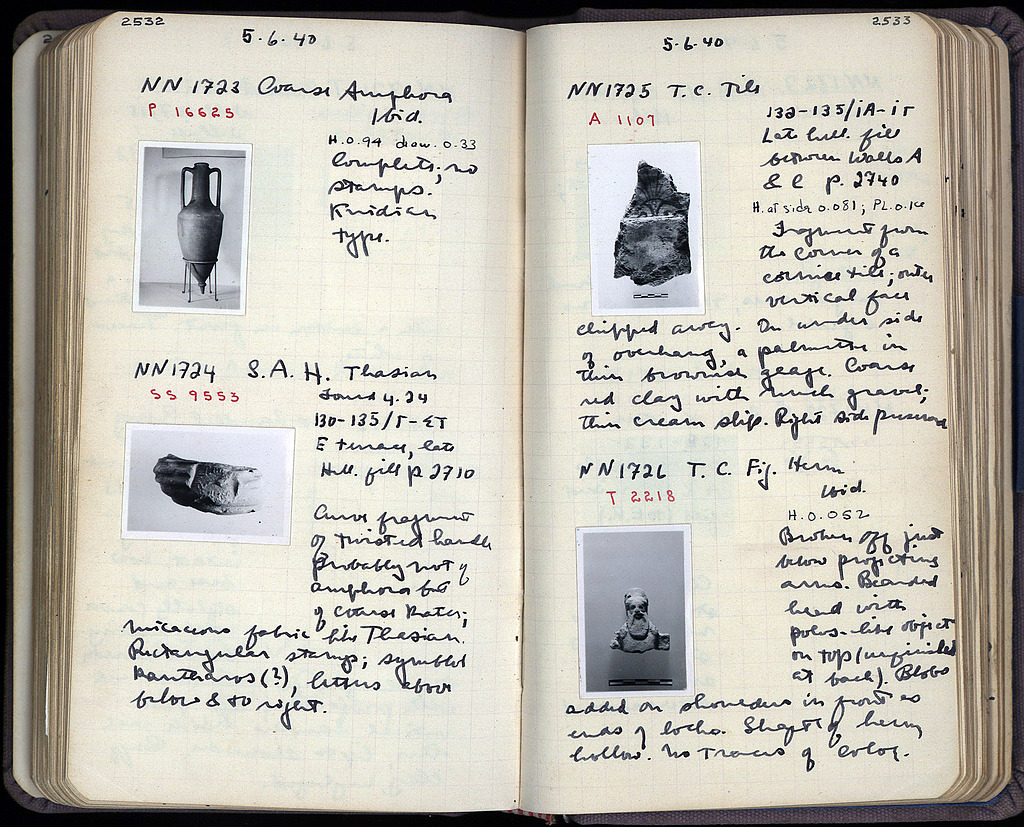 2532
5·6·40
NN 1723 Coarse Amphora
P 16625
Ibid.
H. 0.94 diam. 0.33
Complete; no
stamps.
Knidian
type.
NN1724 S.A.H. Thasian
SS 9553
Found 4.24
130-135/Γ-ΣΤ
E terrace, late
Hell. fill p. 2710
Curve fragment
of twisted handle
probably not of
amphora but
of coarse krater;
micaceous fabric like Thasian.
Rectangular stamp; symbol
kantharos (?), letters above
below & to right.
2533
5·6·40
NN1725 T.C. Tile
A 1107
132-135/ΙΑ-ΙΓ
Late hell. fill
between Walls A
& C p. 2740
H. at side 0.081; PL. 0.16
Fragment from
the corner of a
cornice tile; outer
vertical face
chipped away. On under side
of overhang, a palmette in
thin brownish glaze. Coarse
red clay with much gravel;
thin cream slip. Right side preserved
NN1726 T.C. Fig. Herm
T 2218
Ibid.
H. 0.052
Broken off just
below projecting
arms. Bearded
head with
polos-like object
on top (unfinished
at back). Blobs
added on shoulders in front as
ends of locks. Shaft of herm
hollow. No traces of color.